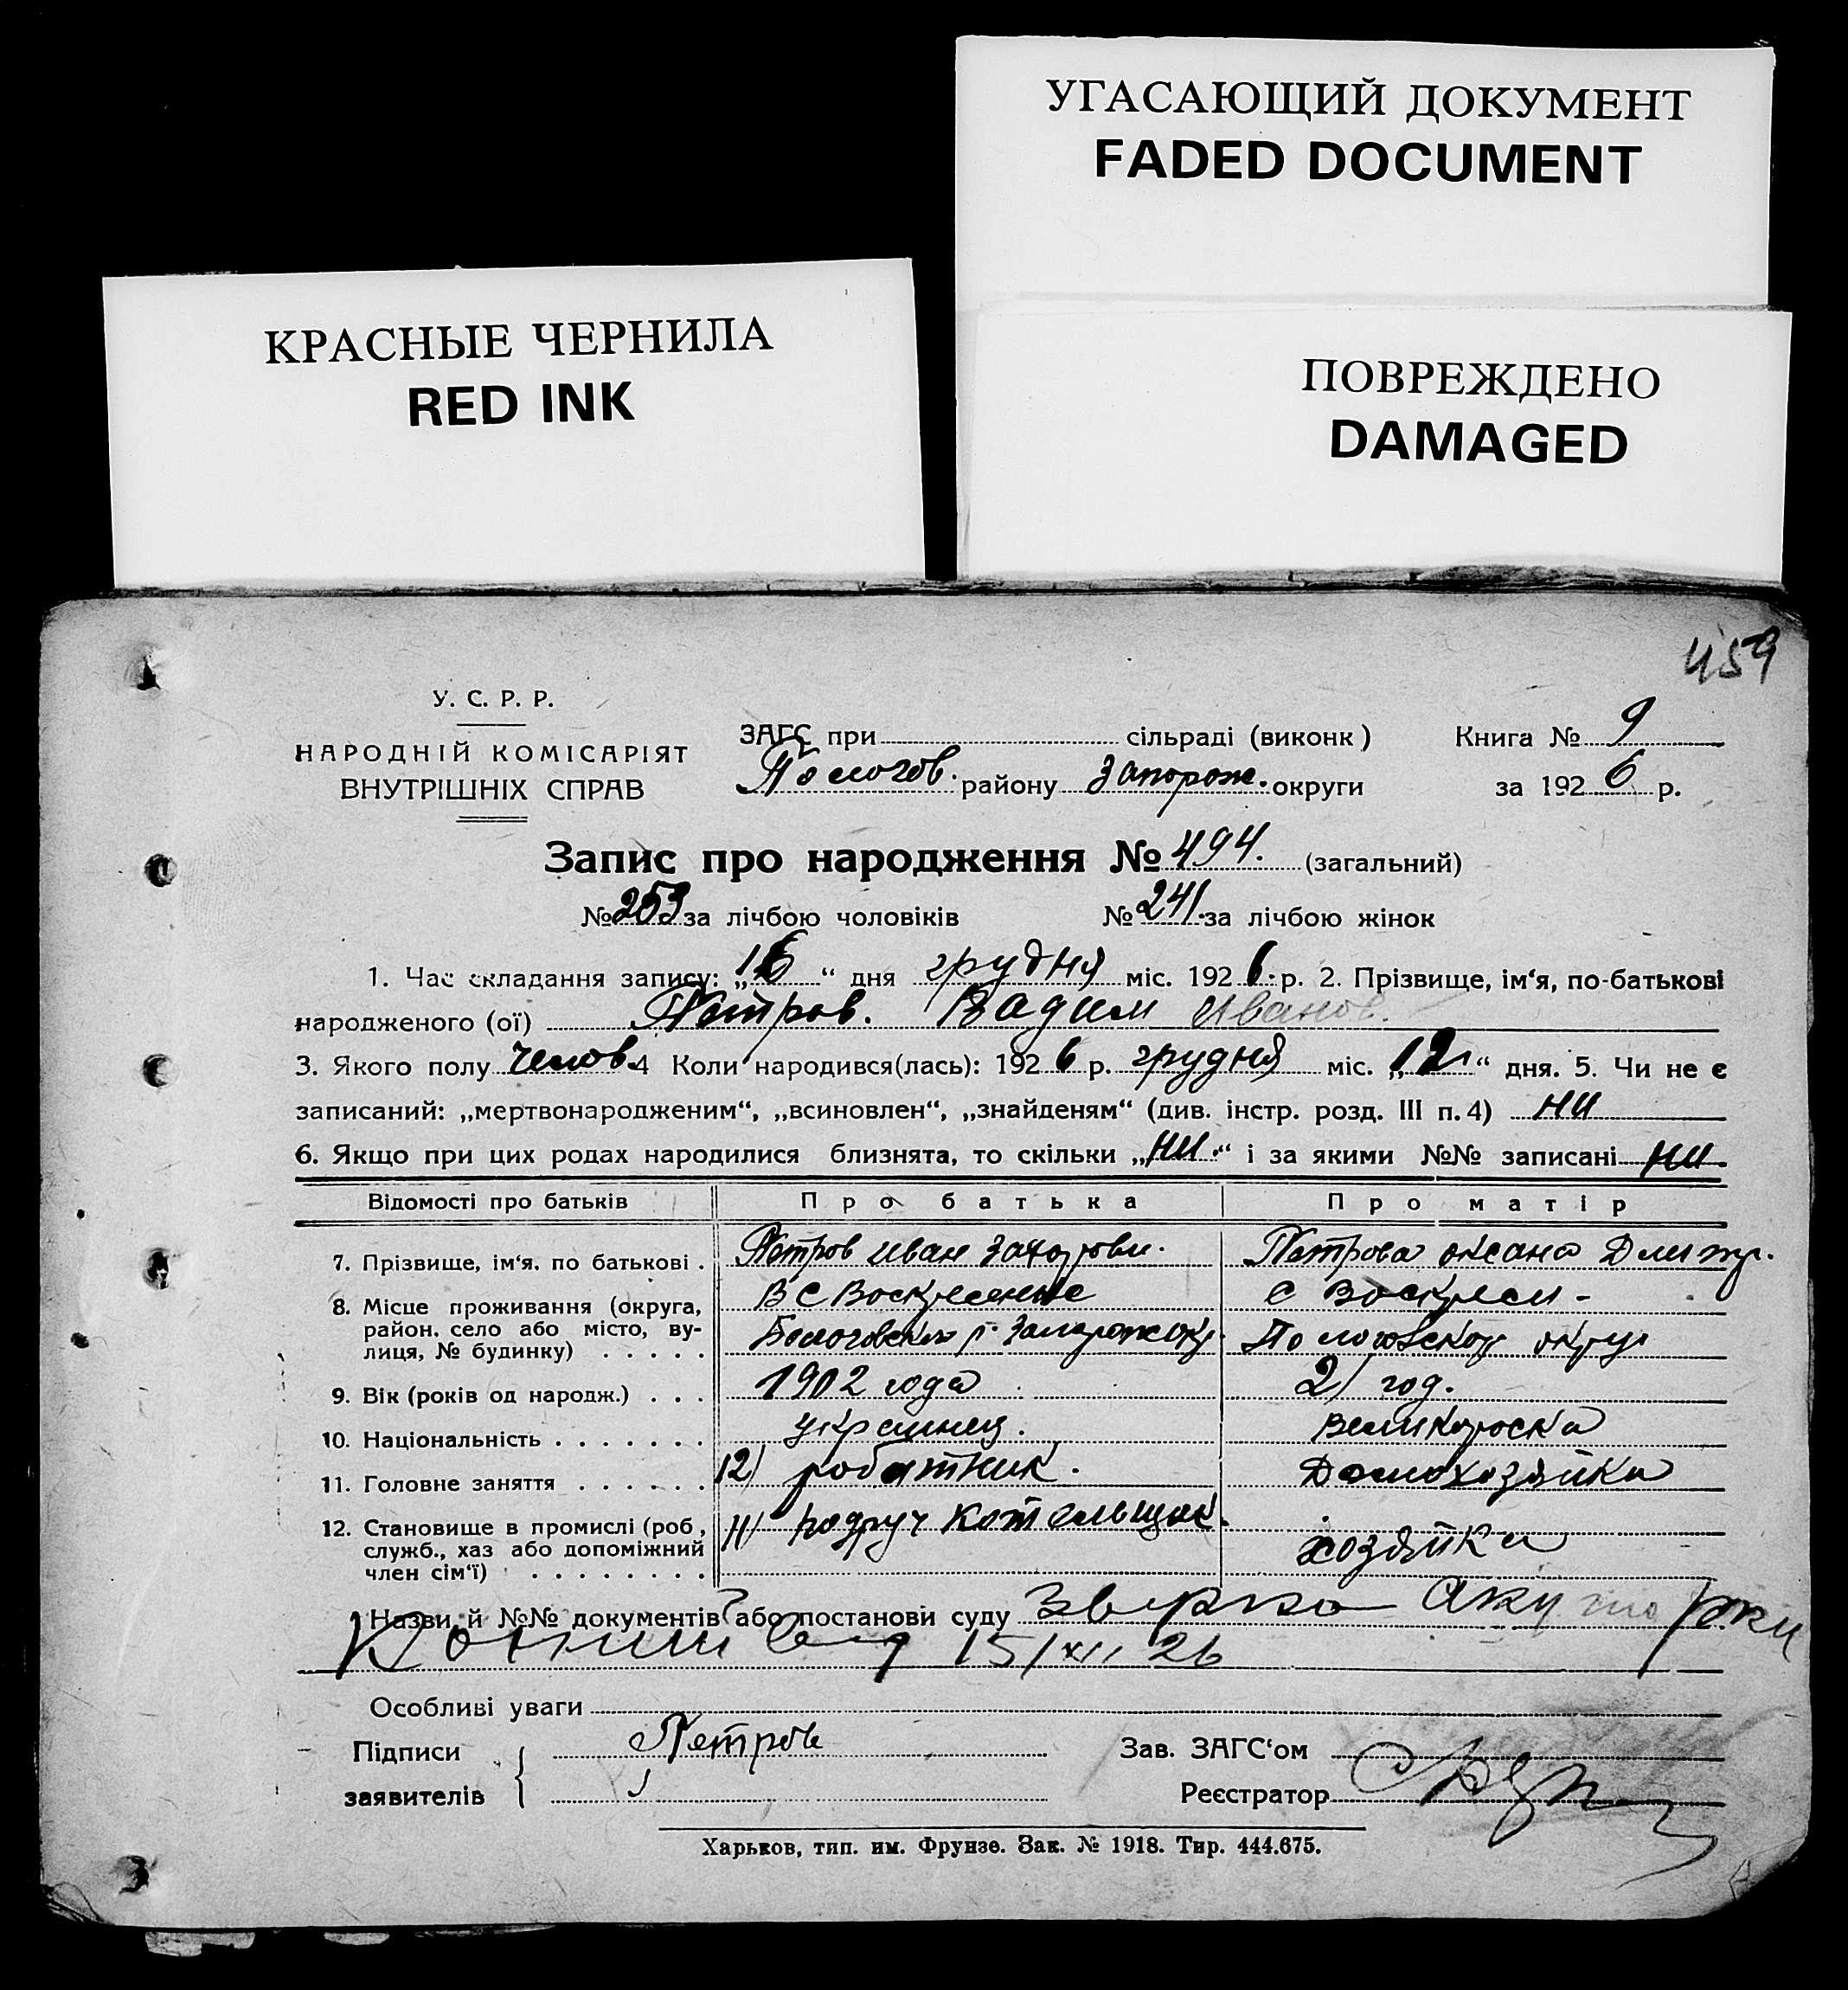 УГАСАЮЩИЙ ДОКУМЕНТ
FADED DOCUMENT
КРАСНЫЕ ЧЕРНИЛА
RED INK
ПОВРЕЖДЕНО
DAMAGED
459
У. С. Р. Р.
НАРОДНІЙ КОМІСАРІЯТ
ВНУТРІШНІХ СПРАВ
ЗАГС при сільраді (виконк)
Пологов. району Запорож. округи
Книга № 9
за 1926 р.
Запис про народження № 494. (загальний)
№ 253 за лічбою чоловіків № 241. за лічбою жінок
1. Час складання запису: „16“ дня грудня міс. 1926. р. 2. Прізвище, ім‘я, по-батькові
народженого (ої) Петров. Вадим Иванов.
3. Якого полу челов. 4 Коли народився(лась): 1926 р. грудня міс. „12“ дня. 5. Чи не є
записаний: „мертвонародженим“, „всиновлен“, „знайденям“ (див. інстр. розд. III п. 4) ни
6. Якщо при цих родах народилися близнята, то скільки „ни.“ і за якими №№ записані ни.
Відомості про батьків Про батька Про матір
7. Прізвище, ім‘я. по батькові . Петров Иван Петрова оксана Дмитр.
8. Місце проживання (округа, район. село або місто, вулиця, № будинку) . . . . .
В С Воскресенье
С Воскресен-
Пологовской округ
9. Вік (років од народж.) . . . 1902 года 21 год.
10. Національність . . . . . . . украинец. Великороска
11. Головне заняття . . . . . . 12) работник. Домохозяйка
12. Становище в промислі (роб, служб., хаз або допоміжний член сім‘ї) . . . . . . . .
11) подруч котельщик.
хозяйка
Назви й №№ документів або постанови суду акушорки
15/XII 26
Особливі уваги
Підписи Петров
заявителів
Зав. ЗАГС‘ом
Реєстратор
Харьков, тип. им. Фрунзе. Зак. № 1918. Тир. 444.675.